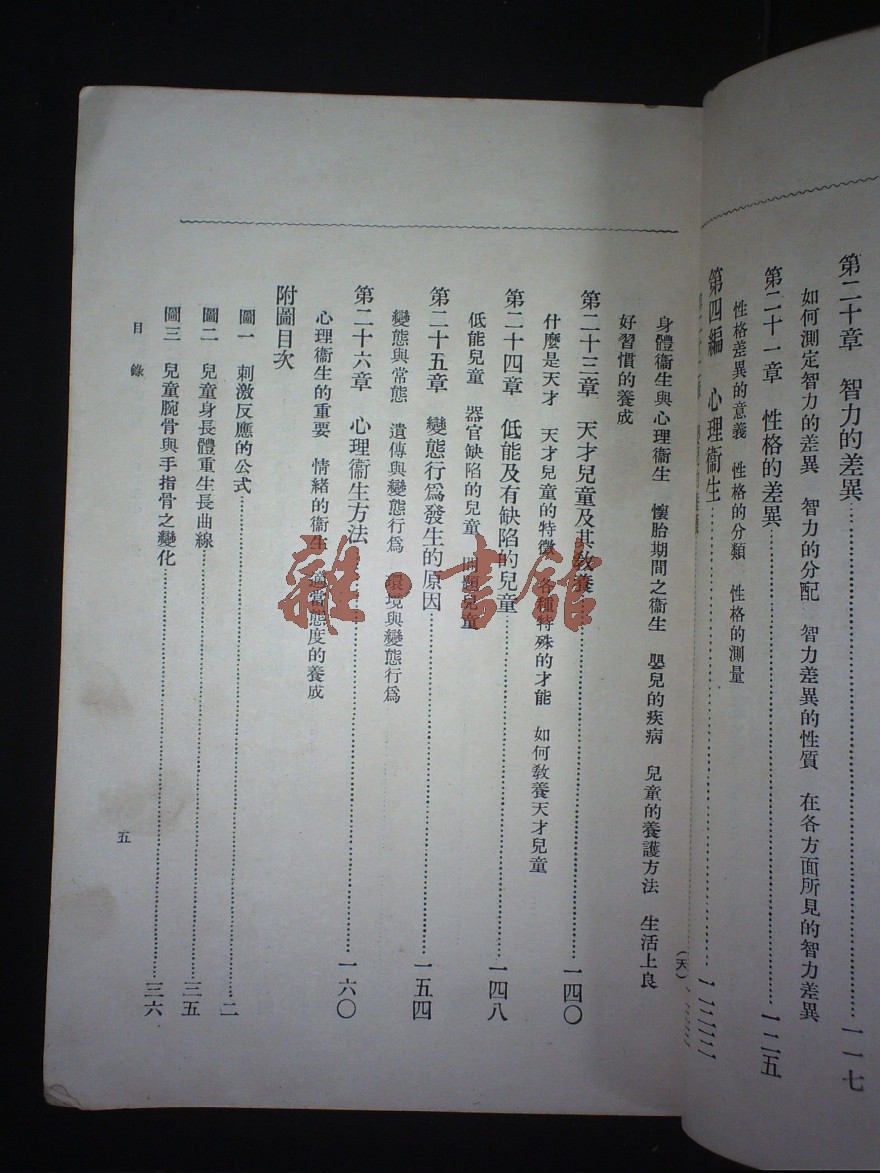 第二十章　智力的差異……一一七
如何測定智力的差異　智力的分配　智力差異的性質　在各方面所見的智力差異
第二十一章　性格的差異……一二五
性格差異的意義　性格的分類　性格的測量
第四編　心理衞生……
身體衞生與心理衞生　懷胎期間之衞生　嬰兒的疾病　兒童的養護方法　生活上良
好習慣的養成
第二十三章　天才兒童及其教養……一四〇
什麼是天才　天才兒童的特徵　各種特殊的才能　如何教養天才兒童
第二十四章　低能及有缺陷的兒童……一四八
低能兒童　器官缺陷的兒童　問題兒童
第二十五章　變態行爲發生的原因……一五四
變態與常態　遺傳與變態行爲　環境與變態行爲
第二十六章　心理衞生方法……一六〇
心理衞生的重要　情緒的衞生　適當態度的養成
附圖目次
圖一　刺激反應的公式……二
圖二　兒童身長體重生長曲線……三五
圖三　兒童腕骨與手指骨之變化……三六
目錄
五
(天)
雜·書館